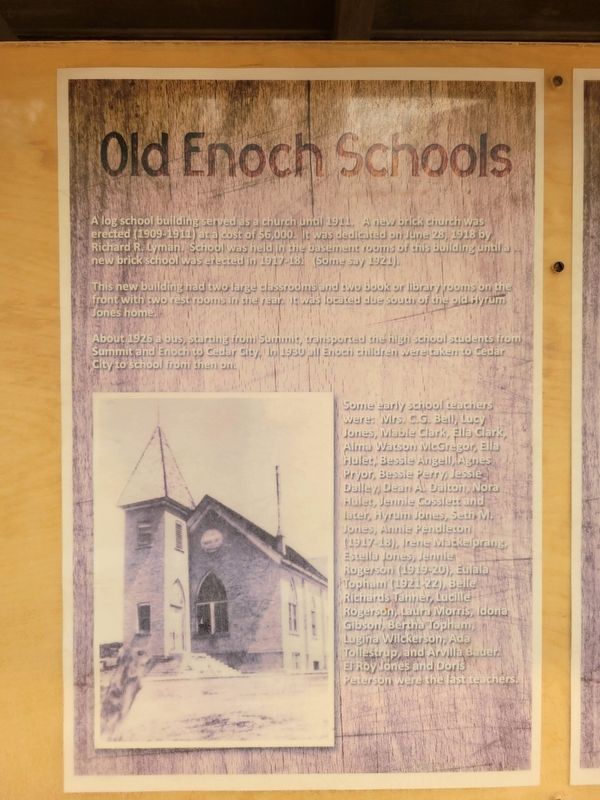 Old Enoch Schools
A log school building served as a church until 1911. A new brick church was
erected (1909-1911) at a cost of $6,000. It was dedicated on June 28, 1918 by
Richard R. Lyman. School was held in the basement rooms of this building until a
new brick school was erected in 1917-18. (Some say 1921).
This new building had two large classrooms and two book or library rooms on the
front with two rest rooms in the rear. It was located due south of the old Hyrum
Jones home.
About 1926 a bus, starting from Summit, transported the high school students from
Summit and Enoch to Cedar City. In 1930 all Enoch children were taken to Cedar
City to school from then on.
Some early school teachers
were: Mrs. C.G. Bell, Lucy
Jones, Mable Clark, Ella Clark,
Alma Watson McGregor, Ella
Hulet, Bessie Angell, Agnes
Pryor, Bessie Perry, Jessie
Dalley, Dean A. Dalton, Nora
Hulet, Jennie Cosslett and
later, Hyrum Jones, Seth M.
Jones, Annie Pendleton
(1917-18), Irene Mackelprang,
Estella Jones, Jennie
Rogerson (1919-20), Eulala
Topham (1921-22), Belle
Richards Tanner, Lucille
Rogerson, Laura Morris, Idona
Gibson, Bertha Topham,
Lugina Wilckerson, Ada
Tollestrup, and Arvilla Bauer.
El Roy Jones and Doris
Peterson were the last teachers.